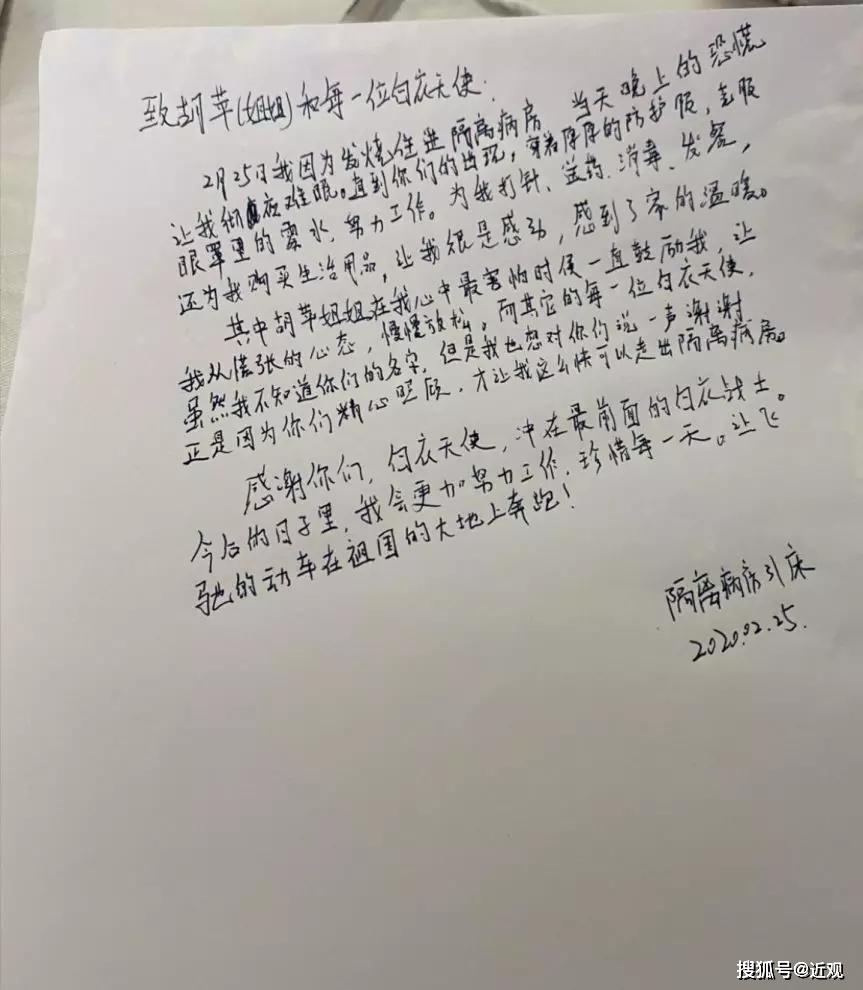 致胡苹(姐姐)和每一位白衣天使:
2月25日我因为发烧住进隔离病房,当天晚上的恐慌
让我彻夜难眠。直到你们的出现,穿着厚厚的防护服,克服
眼罩里的雾水,努力工作。为我打针、送药、消毒、发餐,
还为我购买生活用品,让我很是感动,感到了家的温暖。
其中胡苹姐姐在我心中最害怕时候一直鼓励我,让
我从慌张的心态,慢慢放松。而其它的每一位白衣天使,
虽然我不知道你们的名字,但是我也想对你们说一声谢谢
正是因为你们精心照顾,才让我这么快可以走出隔离病房。
感谢你们,白衣天使,冲在最前面的白衣战士。
今后的日子里,我会更加努力工作,珍惜每一天。让飞
驰的动车在祖国的大地上奔跑!
隔离病房31床
2020.02.25.
搜狐号@近观